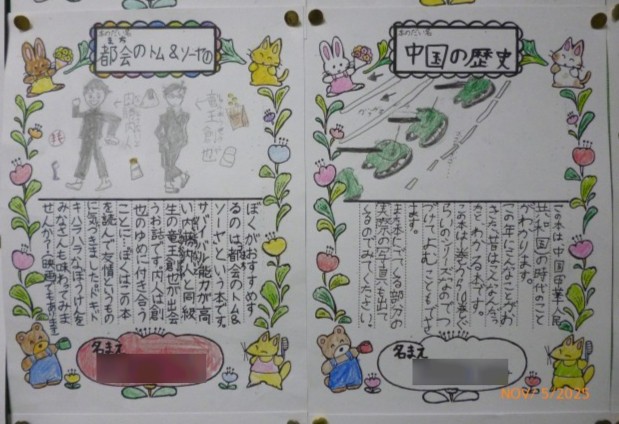 本のだい名
都会のトム&ソーヤ①
竜王創也
ぼくがおすすめす
るのは都会のトム&
ソーヤという本です。
サバイバル能力が高
い内藤内人と同級
生の竜王創也が出会
うお話です。内人は創
也のゆめに付き合う
ことに…。ぼくはこの本
を読んで友情というもの
に気づきました。ドキドキ
ハラハラなぼうけんを
みなさんも味わってみま
せんか?映画でもあります。
名まえ
本のだい名
中国の歴史
この本は中国(中華人民
共和国)の時代のこと
がわかります。
この年にこんなことがお
きた、昔はこんな
かとわかる本です。
この本は
シリーズなのでつ
づけてよむこともでき
ます。
また本にでてくる部分の
実際の写真も出て
くるのでみてください!
名まえ
NOV/ 5/2025